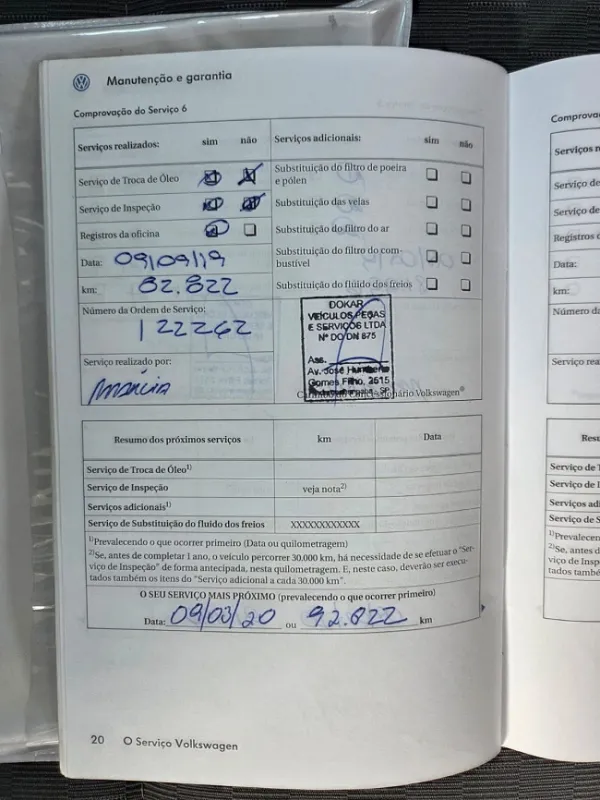 Manutenção e garantia
Comprovação do Serviço 6
Serviços realizados: sim não
Serviços adicionais: sim não
Serviço de Troca de Óleo
Substituição do filtro de poeira
e pólen
Serviço de Inspeção
Substituição das velas
Registros da oficina
Substituição do filtro do ar
Data: 09/09/19
Substituição do filtro do com-
bustível
km: 82.822
Substituição do fluido dos freios
Número da Ordem de Serviço:
122262
DOKAR
VEÍCULOS PEÇAS
E SERVIÇOS LTDA
Nº DO/DN 875
Ass.
Av. José Humberto
Gomes Filho, 2615
SP
Serviço realizado por:
Marcia
Concessionário Volkswagen®
Resumo dos próximos serviços km Data
Serviço de Troca de Óleo1)
Serviço de Inspeção veja nota2)
Serviços adicionais1)
Serviço de Substituição do fluido dos freios XXXXXXXXXXXX
1)Prevalecendo o que ocorrer primeiro (Data ou quilometragem)
2)Se, antes de completar 1 ano, o veículo percorrer 30.000 km, há necessidade de se efetuar o "Ser-
viço de Inspeção" de forma antecipada, nesta quilometragem. E, neste caso, deverão ser execu-
tados também os itens do "Serviço adicional a cada 30.000 km".
O SEU SERVIÇO MAIS PRÓXIMO (prevalecendo o que ocorrer primeiro)
Data: 09/03/20 ou 92.822 km
20 O Serviço Volkswagen
Comprova
Serviços r
Serviço de
Serviço de
Registros d
Data:
km:
Número da
Serviço rea
Resu
Serviço de T
Serviço de I
Serviços adi
Serviço de S
1)Prevalecen
2)Se, antes d
viço de Insp
tados també